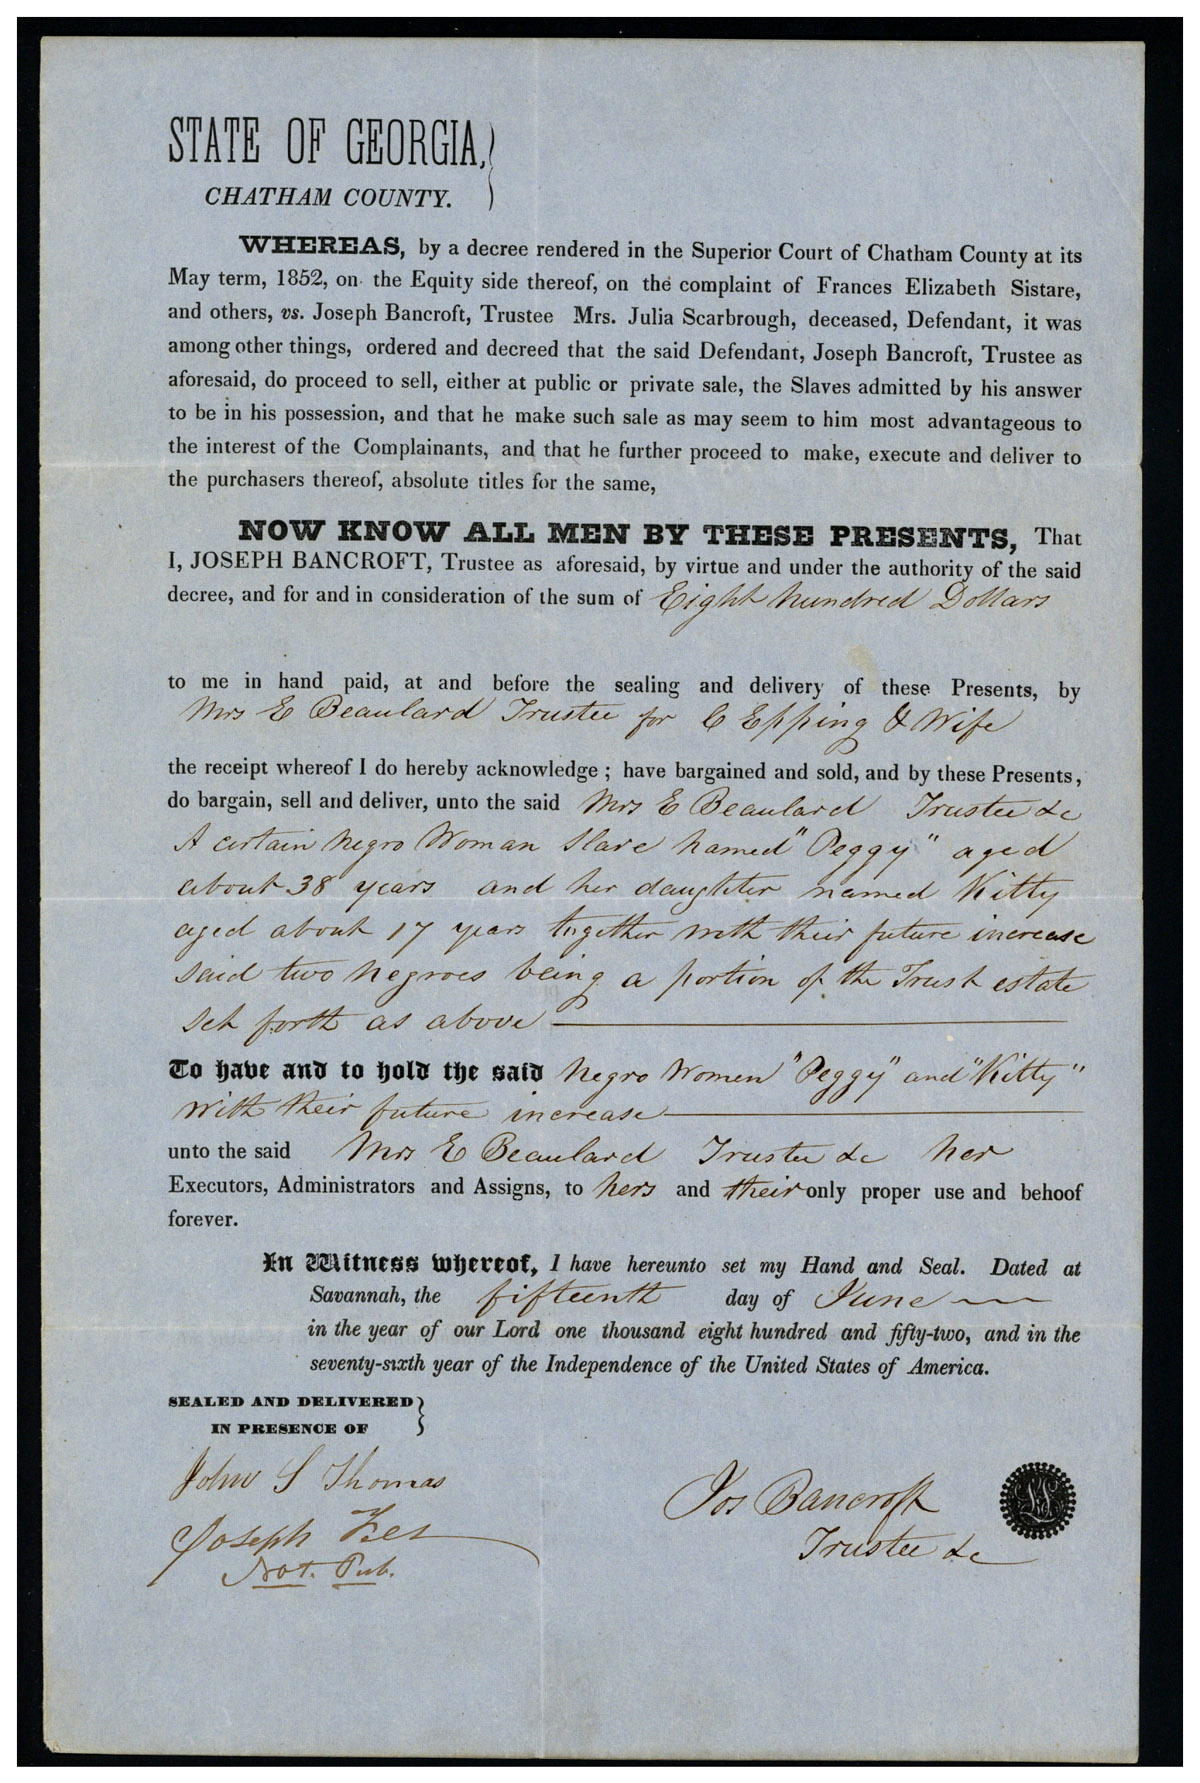 STATE OF GEORGIA,
CHATHAM COUNTY.
WHEREAS, by a decree rendered in the Superior Court of Chatham County at its
May term, 1852, on the Equity side thereof, on the complaint of Frances Elizabeth Sistare,
and others, vs. Joseph Bancroft, Trustee Mrs. Julia Scarbrough, deceased, Defendant, it was
among other things, ordered and decreed that the said Defendant, Joseph Bancroft, Trustee as
aforesaid, do proceed to sell, either at public or private sale, the Slaves admitted by his answer
to be in his possession, and that he make such sale as may seem to him most advantageous to
the interest of the Complainants, and that he further proceed to make, execute and deliver to
the purchasers thereof, absolute titles for the same,
NOW KNOW ALL MEN BY THESE PRESENTS, That
I, JOSEPH BANCROFT, Trustee as aforesaid, by virtue and under the authority of the said
decree, and for and in consideration of the sum of Eight hundred Dollars
to me in hand paid, at and before the sealing and delivery of these Presents, by
Mrs E Beaulard Trustee for C Epping & Wife
the receipt whereof I do hereby acknowledge; have bargained and sold, and by these Presents,
do bargain, sell and deliver, unto the said Mrs E Beaulard Trustee &c
A certain Negro Woman Slave named "Peggy" aged
about 38 years and her daughter named Kitty
aged about 17 years together with their future increase
said two negroes being a portion of the Trust estate
set forth as above
To have and to hold the said Negro Women "Peggy" and "Kitty"
with their future increase
unto the said Mrs E Beaulard Trustee &c her
Executors, Administrators and Assigns, to hers and their only proper use and behoof
forever.
In Witness whereof, I have hereunto set my Hand and Seal. Dated at
Savannah, the fifteenth day of June
in the year of our Lord one thousand eight hundred and fifty-two, and in the
seventy-sixth year of the Independence of the United States of America.
SEALED AND DELIVERED
IN PRESENCE OF
John S Thomas
Jos Bancroft
Joseph
Trustee &c
Not. Pub.